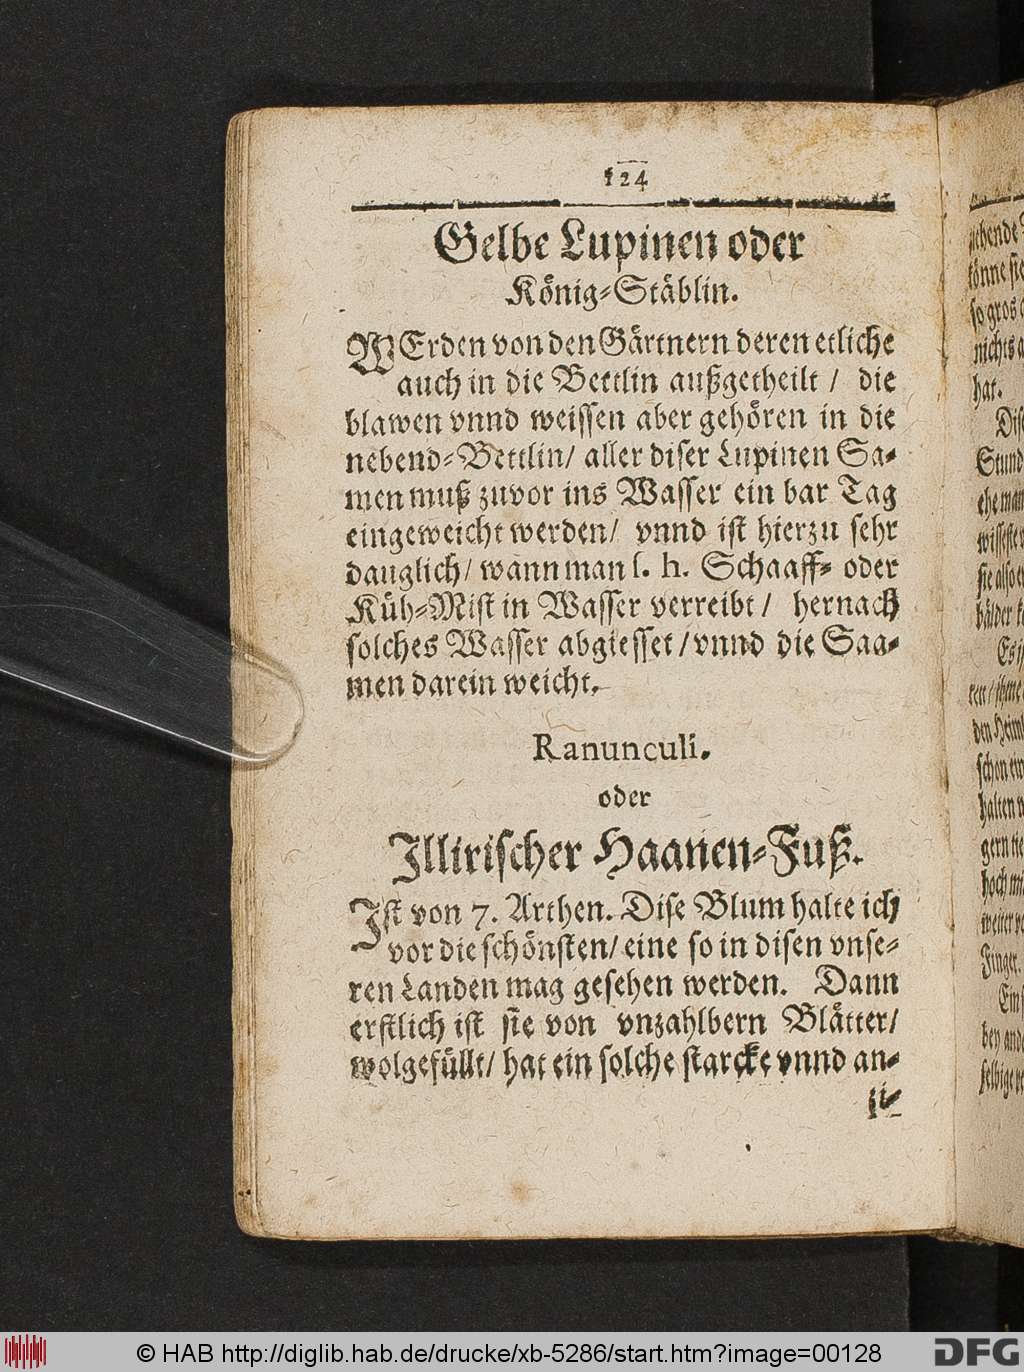 124
Gelbe Lupinen oder
König-Stäblin.
WErden von den Gärtnern deren etliche
auch in die Bettlin außgetheilt / die
blawen vnnd weissen aber gehören in die
nebend-Bettlin/ aller diser Lupinen Sa-
men muß zuvor ins Wasser ein bar Tag
eingeweicht werden/ vnnd ist hierzu sehr
dauglich/ wann man s. h. Schaaff- oder
Küh-Mist in Wasser verreibt / hernach
solches Wasser abgiesset / vnnd die Saa-
men darein weicht.
Ranunculi.
oder
Illirischer Haanen-Fuß.
Ist von 7. Arthen. Dise Blum halte ich
vor die schönsten/ eine so in disen vnse-
ren Landen mag gesehen werden. Dann
erstlich ist sie von vnzahlbern Blätter/
wolgefüllt/ hat ein solche starcke vnnd an-
hende
könne sie
so gros
nichts a
hat.
Stund
ehe man
sie also
bälder
schon
halten
gern
hoch
Finger.
bey
© HAB http://diglib.hab.de/drucke/xb-5286/start.htm?image=00128
DFG